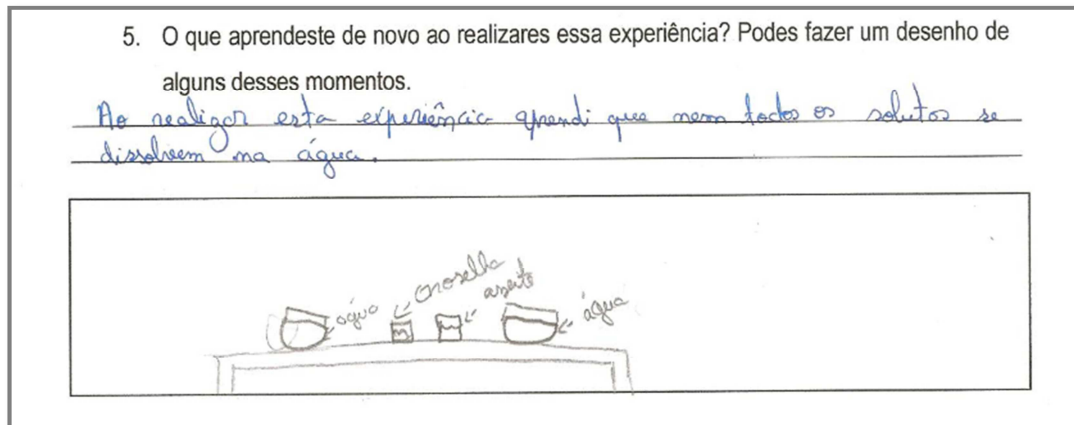 5. O que aprendeste de novo ao realizares essa experiência? Podes fazer um desenho de
alguns desses momentos.
Ao realizar esta experiência aprendi que nem todos os solutos se
dissolvem na água.
água
Groselha
azeite
água